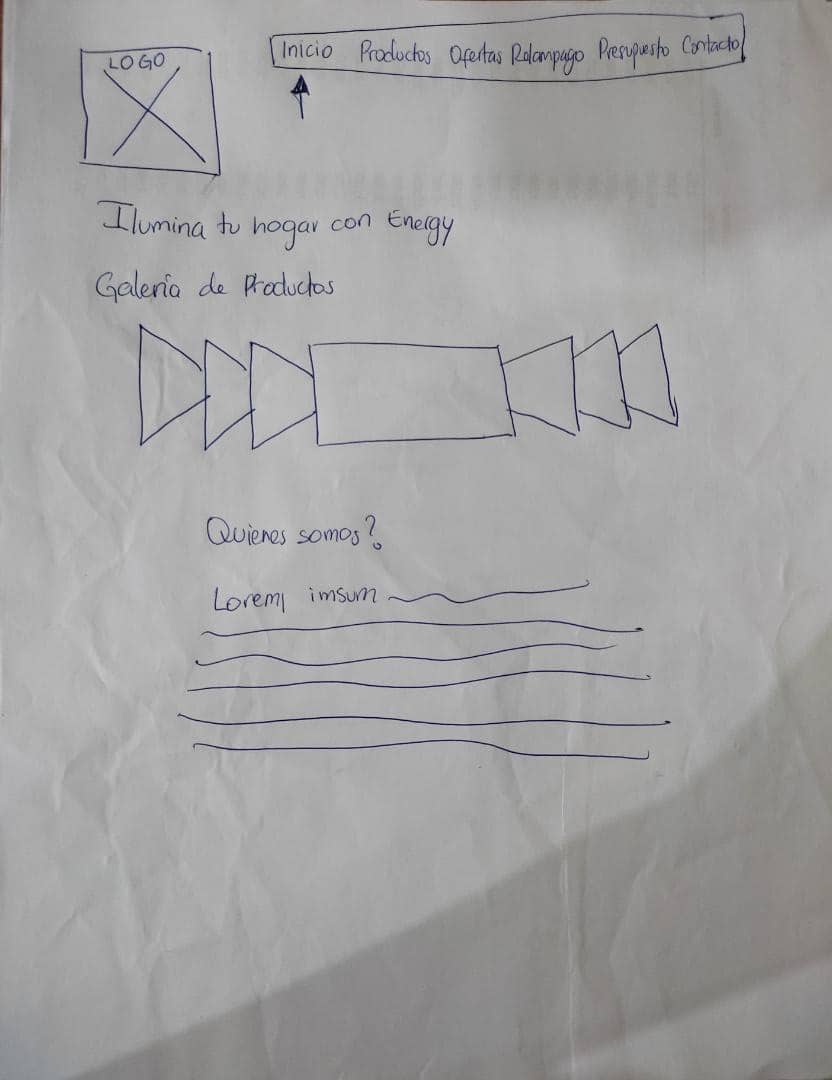 LOGO
Inicio Productos Ofertas Relampago Presupuesto Contacto
Ilumina tu hogar con Energy
Galería de Productos
Quienes somos?
Lorem imsum